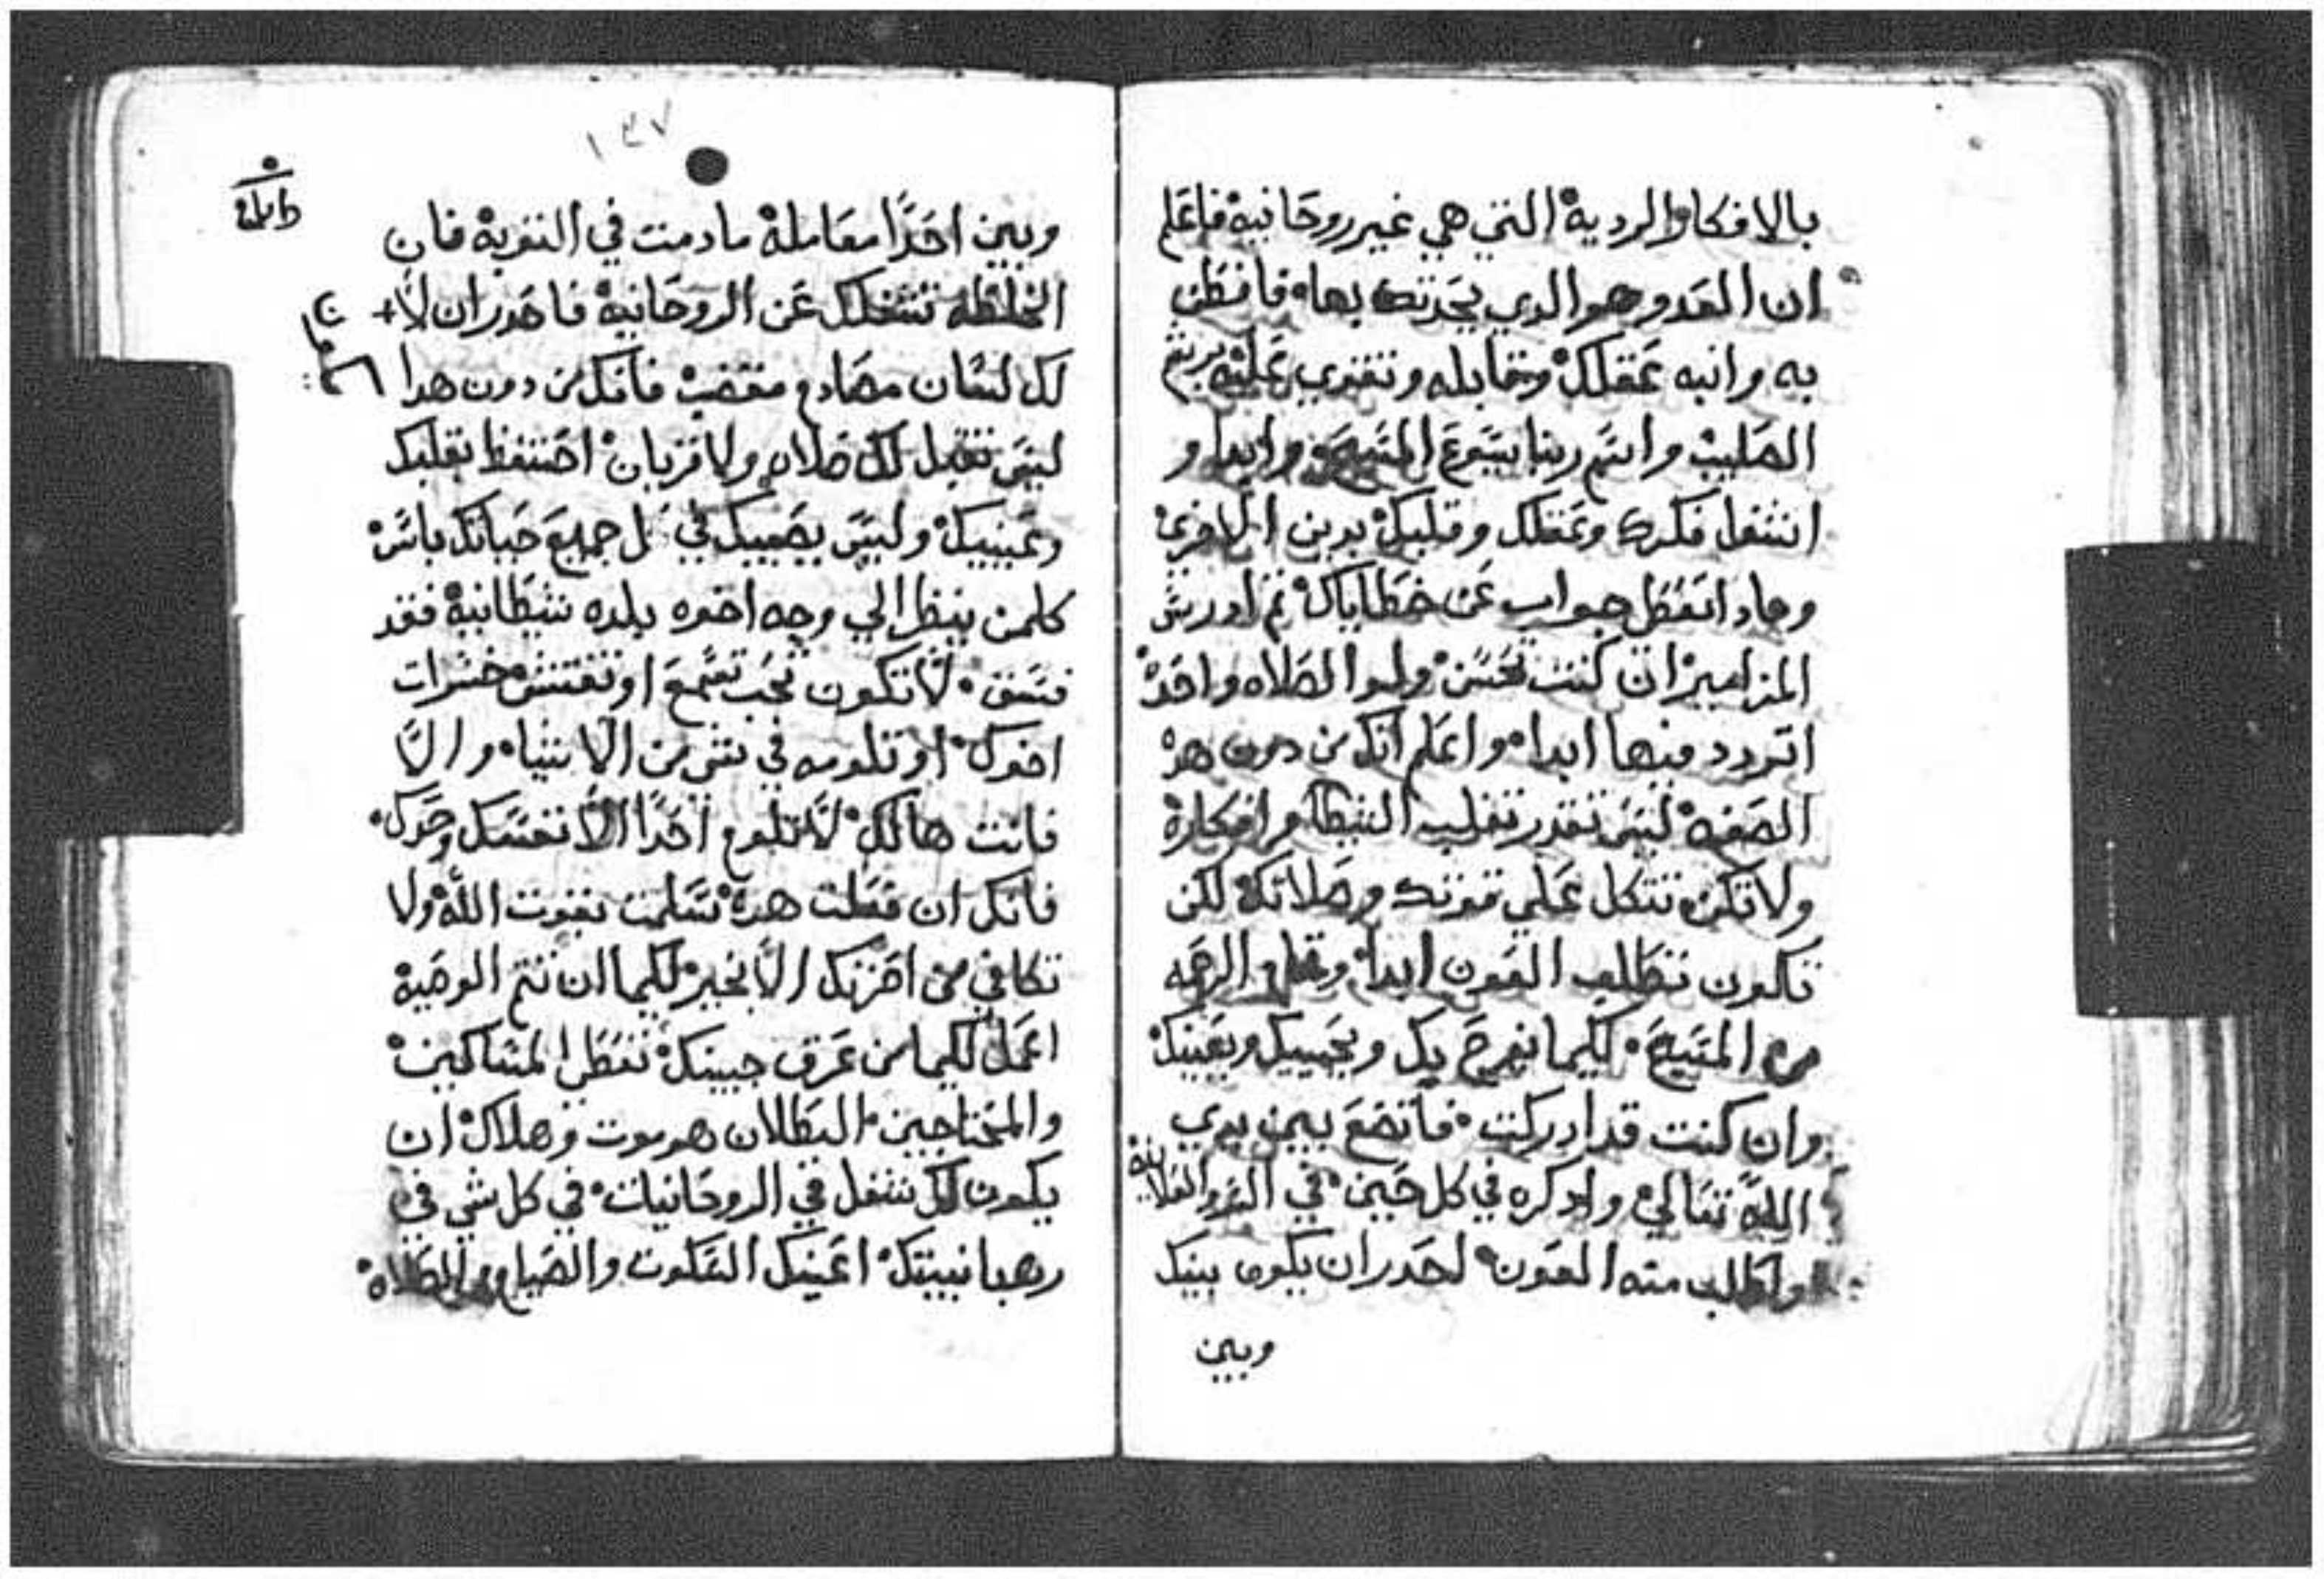 بالافكار الرديه التي هي غير روحانيه فاعلم
ان العدو هو الدي يحدتك بها فافطن
به وانبه عقلك وتقابله وتتقوي عليه برشم
الصليب واسم ربنا يسوع المسيح وابدا و
اشغل فكرك وعقلك وقلبك بدين الاخرين
وماذا تعطي جواب عن خطاياك تم ادرس
المزامير ان كنت تحسن ولو الصلاه واحده
اتردد فيها ابدا واعلم انك من دون هده
الصفه ليس تقدر تغلب الشيطان وافكاره
ولا تكن تتكل علي قوتك وصلاتك لكن
تكون تطلب العون ابدا والرحمه
من المسيح لكيما يفرح بك ويحييك ويعينك
وان كنت قد ادركت فاتضع بين يدي
الله تعالي وادكره في كل حين في السر والعلانيه
واطلب منه العون احدر ان يكون بينك
وبين
١٤٧
وبين احدا معامله مادمت في التوبه فان
الخلطه تشغلك عن الروحانيه فاحدر ان لا
لك لسان مغضب فانك من دون هدا
ليس تقبل لك صلاه ولا قربان احتفظ بقلبك
وعينيك وليس يصيبك في جميع حياتك باس
كلمن ينظر الي وجه اخوه بلده شيطانيه فقد
فسق لا تكون تحب تسمع او تفتش خسرات
اخوك او تلومه في شي من الاشيا والا
فانت هالك لا تلوم احدا الا نفسك وحدك
فانك ان فعلت هده تسلمت بقوت الله ولا
تكافي من احزنك الا بخير لكيما ان تتم الوصيه
اعمل لكيما من عرق جبينك تعطي المساكين
والمحتاجين البطلان هو موت وهلاك ان
يكون لك شغل في الروحانيات في كل شي في
رهبانيتك اعينك السكوت والصيام والصلاه